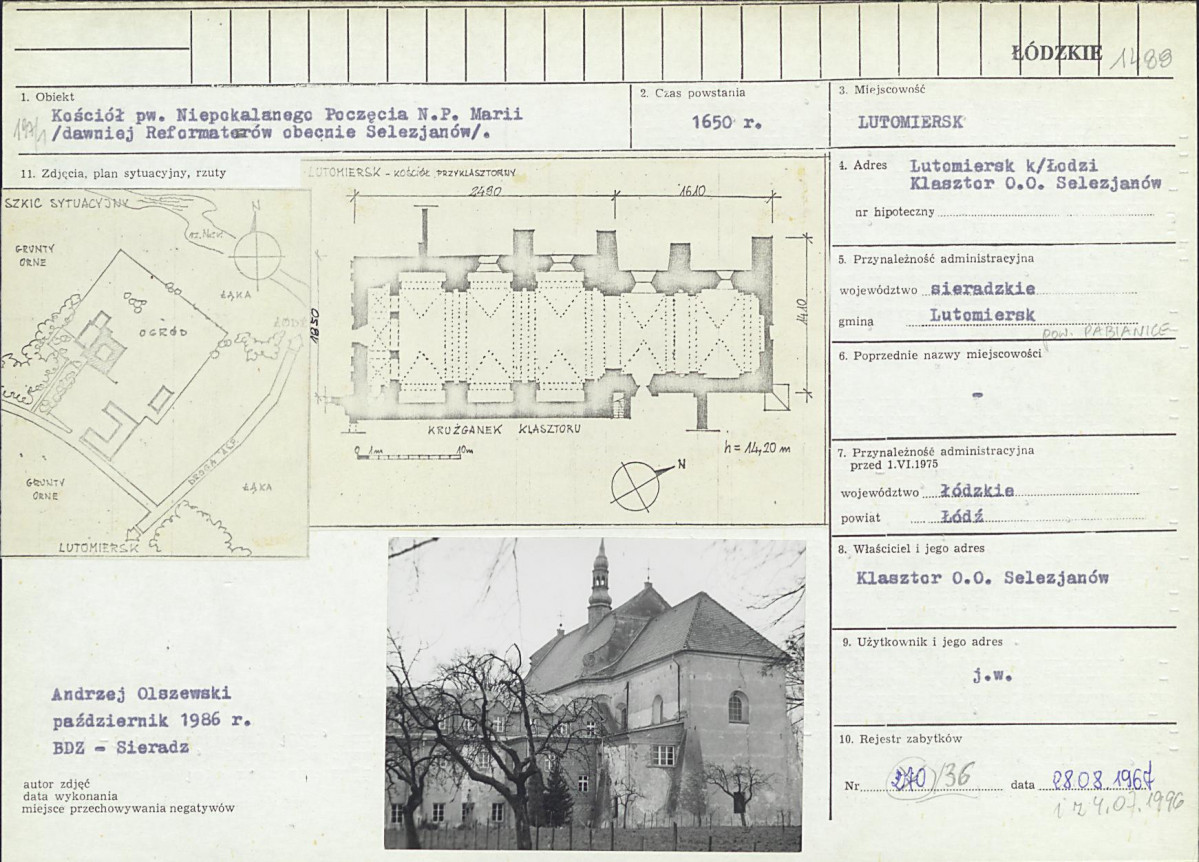 ŁÓDZKIE 1489
1. Obiekt
Kościół pw. Niepokalanego Poczęcia N.P. Marii
/dawniej Reformatorów obecnie Selezjanów/.
2. Czas powstania
1650 r.
3. Miejscowość
LUTOMIERSK
4. Adres Lutomiersk k/Łodzi
Klasztor O.O. Selezjanów
nr hipoteczny
5. Przynależność administracyjna
województwo sieradzkie
gmina Lutomiersk
pow. PABIANICE
6. Poprzednie nazwy miejscowości
-
7. Przynależność administracyjna
przed 1.VI.1975
województwo łódzkie
powiat Łódź
8. Właściciel i jego adres
Klasztor O.O. Selezjanów
9. Użytkownik i jego adres
j.w.
10. Rejestr zabytków
Nr 270/36 data 28.08.1967
i z 4.07.1996
11. Zdjęcia, plan sytuacyjny, rzuty
SZKIC SYTUACYJNY
N
GRUNTY
ORNE
ŁĄKA
OGRÓD
ŁÓDŹ
DROGA
GRUNTY
ORNE
ŁĄKA
LUTOMIERSK
LUTOMIERSK - KOŚCIÓŁ PRZYKLASZTORNY
2490
1610
1850
1410
KRUŻGANEK KLASZTORU
0 1m 10m
h = 14,20 m
N
Andrzej Olszewski
październik 1986 r.
BDZ - Sieradz
autor zdjęć
data wykonania
miejsce przechowywania negatywów